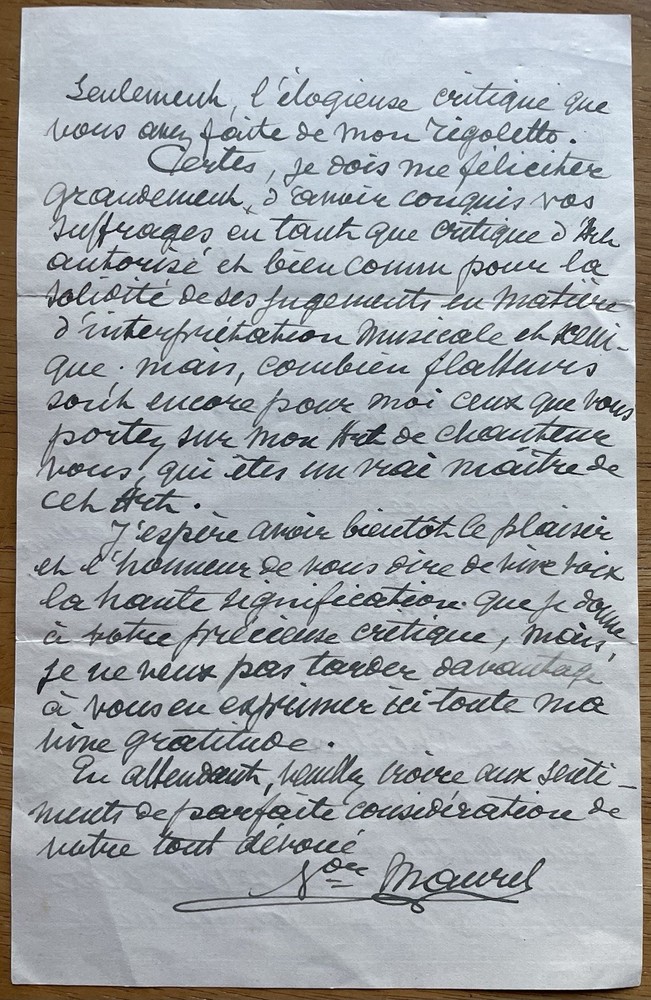 Seulement, l'élogieuse critique que
vous avez faite de mon Rigoletto.
Certes, je dois me féliciter
grandement, d'avoir conquis vos
suffrages en tant que critique d'Art
autorisé et bien connu pour la
solidité de ses jugements en matière
d'interprétation musicale et scéni-
que; mais, combien flatteurs
sont encore pour moi ceux que vous
portez sur mon Art de chanteur
vous, qui êtes un vrai maître de
cet Art.
J'espère avoir bientôt le plaisir
et l'honneur de vous dire de vive voix
la haute signification que je donne
à votre précieuse critique, mais,
je ne veux pas tarder davantage
à vous en exprimer ici toute ma
vive gratitude.
En attendant, veuillez croire aux senti-
ments de parfaite considération de
votre tout dévoué
Vor Maurel